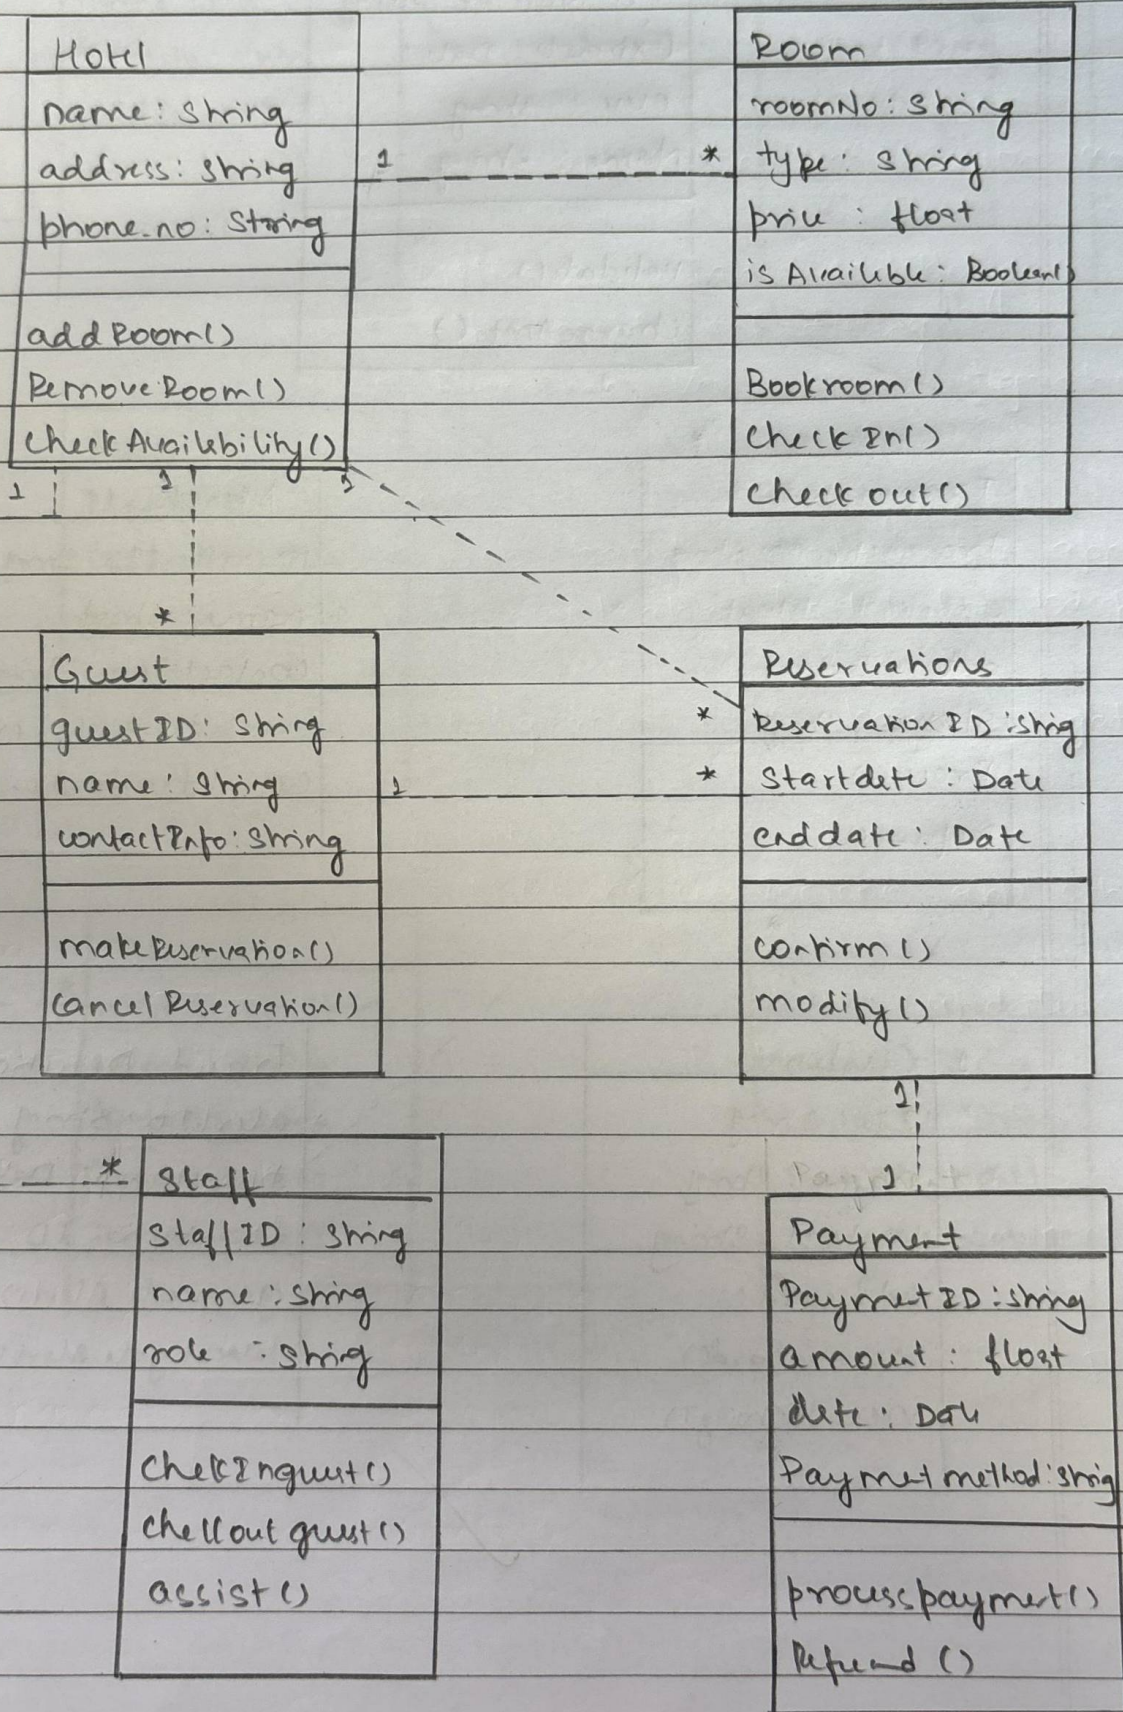 Hotel
name: String
address: String
phone.no: String
addRoom()
RemoveRoom()
checkAvailability()
1
*
Room
roomNo: String
type: String
price : float
isAvailable: Boolean
Bookroom()
check In()
check out()
1
1
1
*
Guest
guestID: String
name: String
contactInfo: String
makeReservation()
cancelReservation()
1
*
*
Reservations
Reservation ID: String
Startdate : Date
enddate: Date
confirm()
modify()
1
1
*
Staff
StaffID: String
name: String
role : String
ChekInguest()
Checkout guest()
assist()
Payment
PaymentID: String
amount: float
date: Date
Paymet method: String
processpayment()
Refund ()